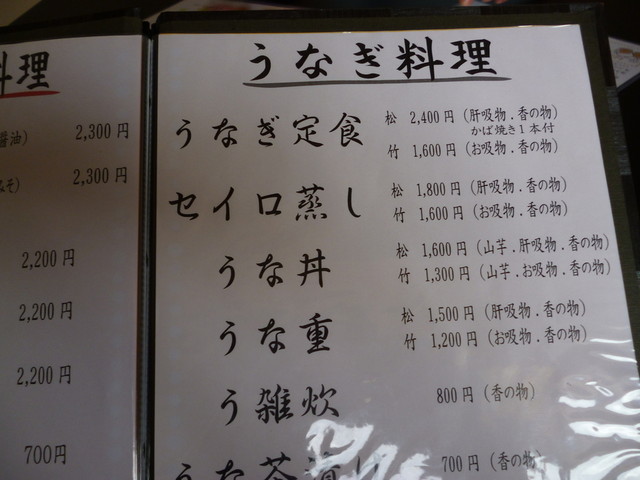 料理
醤油) 2,300円
みそ) 2,300円
2,200円
2,200円
2,200円
700円
うなぎ料理
うなぎ定食 松 2,400円 (肝吸物.香の物)
かば焼き1本付
竹 1,600円 (お吸物.香の物)
セイロ蒸し 松 1,800円 (肝吸物.香の物)
竹 1,600円 (お吸物.香の物)
うな丼 松 1,600円 (山芋.肝吸物.香の物)
竹 1,300円 (山芋.お吸物.香の物)
うな重 松 1,500円 (肝吸物.香の物)
竹 1,200円 (お吸物.香の物)
う雑炊 800円 (香の物)
うな茶漬け 700円 (香の物)